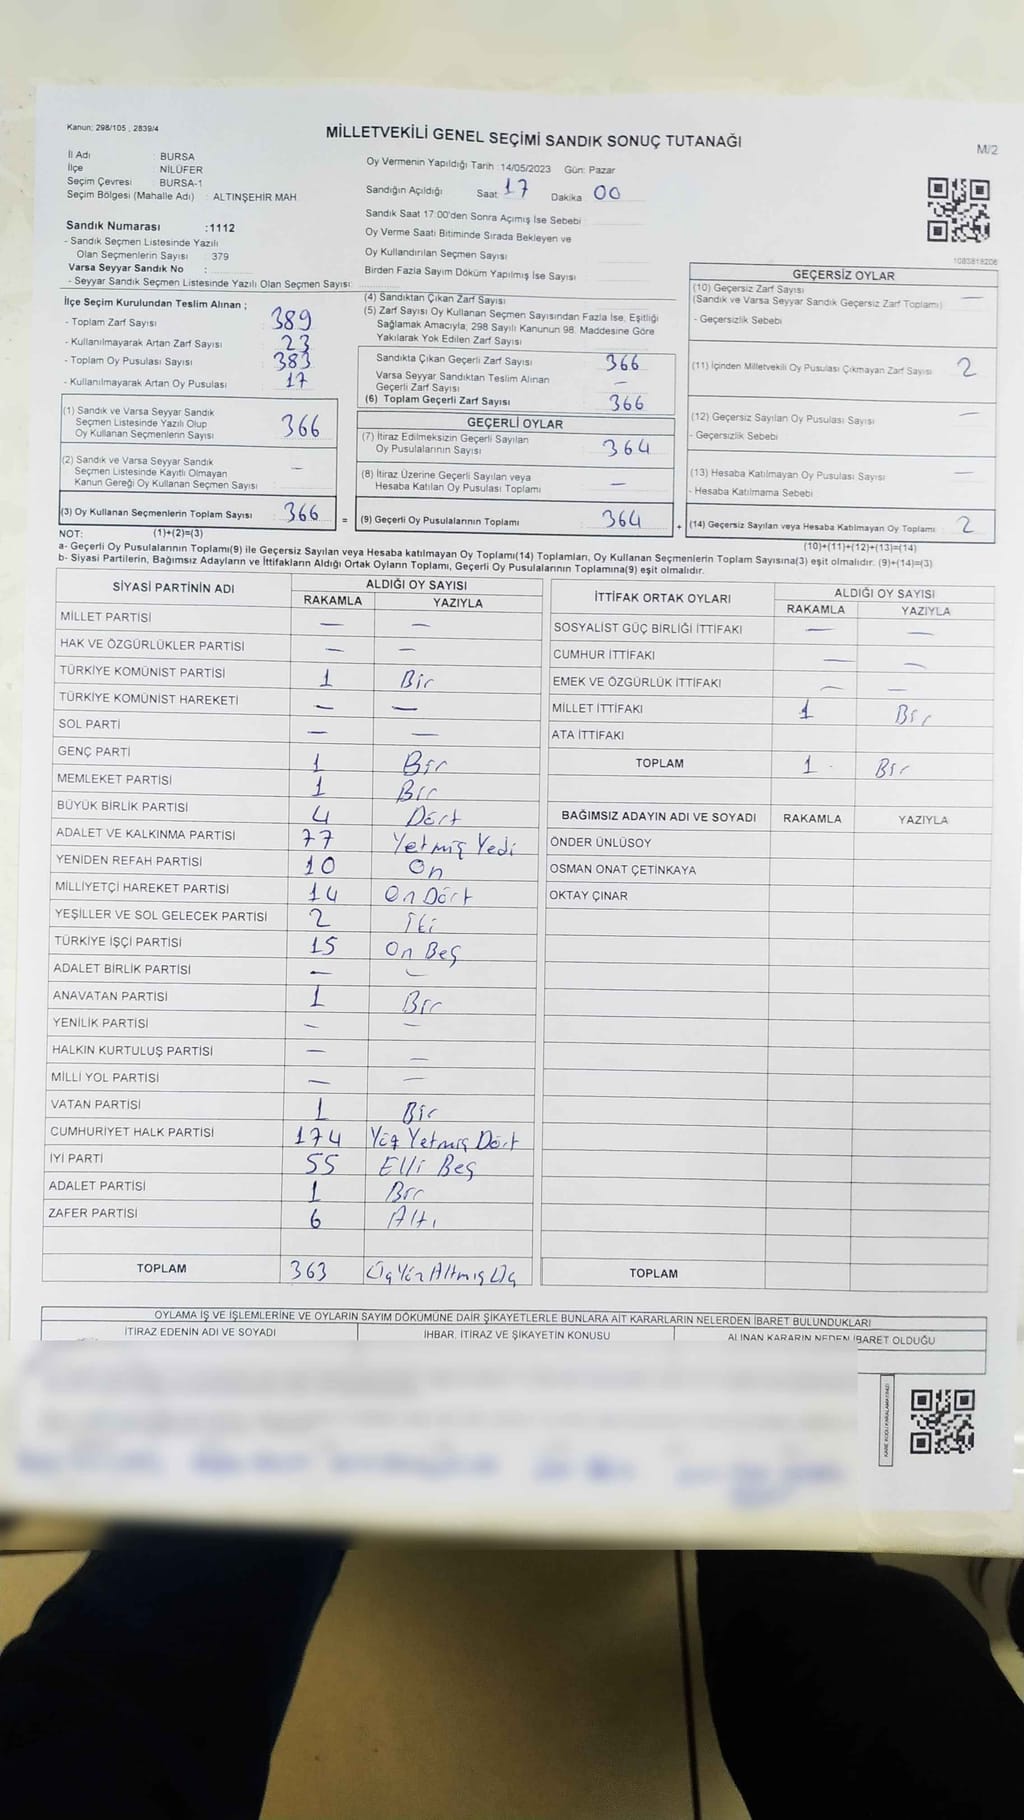 Kanun: 298/105 , 2839/4
MİLLETVEKİLİ GENEL SEÇİMİ SANDIK SONUÇ TUTANAĞI
M/2
İl Adı : BURSA
İlçe : NİLÜFER
Seçim Çevresi : BURSA-1
Seçim Bölgesi (Mahalle Adı) : ALTINŞEHİR MAH.
Oy Vermenin Yapıldığı Tarih :14/05/2023 Gün: Pazar
Sandığın Açıldığı Saat 17 Dakika 00
Sandık Saat 17:00'den Sonra Açımış İse Sebebi
Oy Verme Saati Bitiminde Sırada Bekleyen ve
Oy Kullandırılan Seçmen Sayısı
Birden Fazla Sayım Döküm Yapılmış İse Sayısı
1083818206
Sandık Numarası :1112
- Sandık Seçmen Listesinde Yazılı
Olan Seçmenlerin Sayısı : 379
Varsa Seyyar Sandık No :
- Seyyar Sandık Seçmen Listesinde Yazılı Olan Seçmen Sayısı:
İlçe Seçim Kurulundan Teslim Alınan ;
- Toplam Zarf Sayısı 389
- Kullanılmayarak Artan Zarf Sayısı 23
- Toplam Oy Pusulası Sayısı 383
- Kullanılmayarak Artan Oy Pusulası 17
(1) Sandık ve Varsa Seyyar Sandık
Seçmen Listesinde Yazılı Olup
Oy Kullanan Seçmenlerin Sayısı 366
(2) Sandık ve Varsa Seyyar Sandık
Seçmen Listesinde Kayıtlı Olmayan
Kanun Gereği Oy Kullanan Seçmen Sayısı : —
(3) Oy Kullanan Seçmenlerin Toplam Sayısı 366 =
(4) Sandıktan Çıkan Zarf Sayısı
(5) Zarf Sayısı Oy Kullanan Seçmen Sayısından Fazla İse, Eşitliği
Sağlamak Amacıyla; 298 Sayılı Kanunun 98. Maddesine Göre
Yakılarak Yok Edilen Zarf Sayısı
Sandıkta Çıkan Geçerli Zarf Sayısı 366
Varsa Seyyar Sandıktan Teslim Alınan
Geçerli Zarf Sayısı —
(6) Toplam Geçerli Zarf Sayısı 366
GEÇERLİ OYLAR
(7) İtiraz Edilmeksizin Geçerli Sayılan
Oy Pusulalarının Sayısı 364
(8) İtiraz Üzerine Geçerli Sayılan veya
Hesaba Katılan Oy Pusulası Toplamı —
(9) Geçerli Oy Pusulalarının Toplamı 364 +
GEÇERSİZ OYLAR
(10) Geçersiz Zarf Sayısı —
(Sandık ve Varsa Seyyar Sandık Geçersiz Zarf Toplamı)
- Geçersizlik Sebebi
(11) İçinden Milletvekili Oy Pusulası Çıkmayan Zarf Sayısı 2
(12) Geçersiz Sayılan Oy Pusulası Sayısı —
- Geçersizlik Sebebi
(13) Hesaba Katılmayan Oy Pusulası Sayısı —
- Hesaba Katılmama Sebebi
(14) Geçersiz Sayılan veya Hesaba Katılmayan Oy Toplamı 2
NOT: (1)+(2)=(3)
(10)+(11)+(12)+(13)=(14)
a- Geçerli Oy Pusulalarının Toplamı(9) ile Geçersiz Sayılan veya Hesaba katılmayan Oy Toplamı(14) Toplamları, Oy Kullanan Seçmenlerin Toplam Sayısına(3) eşit olmalıdır. (9)+(14)=(3)
b- Siyasi Partilerin, Bağımsız Adayların ve İttifakların Aldığı Ortak Oyların Toplamı, Geçerli Oy Pusulalarının Toplamına(9) eşit olmalıdır.
SİYASİ PARTİNİN ADI ALDIĞI OY SAYISI
RAKAMLA YAZIYLA
MİLLET PARTİSİ — —
HAK VE ÖZGÜRLÜKLER PARTİSİ — —
TÜRKİYE KOMÜNİST PARTİSİ 1 Bir
TÜRKİYE KOMÜNİST HAREKETİ — —
SOL PARTİ — —
GENÇ PARTİ 1 Bir
MEMLEKET PARTİSİ 1 Bir
BÜYÜK BİRLİK PARTİSİ 4 Dört
ADALET VE KALKINMA PARTİSİ 77 Yetmiş Yedi
YENİDEN REFAH PARTİSİ 10 On
MİLLİYETÇİ HAREKET PARTİSİ 14 On Dört
YEŞİLLER VE SOL GELECEK PARTİSİ 2 İki
TÜRKİYE İŞÇİ PARTİSİ 15 On Beş
ADALET BİRLİK PARTİSİ — —
ANAVATAN PARTİSİ 1 Bir
YENİLİK PARTİSİ — —
HALKIN KURTULUŞ PARTİSİ — —
MİLLİ YOL PARTİSİ — —
VATAN PARTİSİ 1 Bir
CUMHURİYET HALK PARTİSİ 174 Yüz Yetmiş Dört
İYİ PARTİ 55 Elli Beş
ADALET PARTİSİ 1 Bir
ZAFER PARTİSİ 6 Altı
TOPLAM 363 Üç Yüz Altmış Üç
İTTİFAK ORTAK OYLARI ALDIĞI OY SAYISI
RAKAMLA YAZIYLA
SOSYALİST GÜÇ BİRLİĞİ İTTİFAKI — —
CUMHUR İTTİFAKI — —
EMEK VE ÖZGÜRLÜK İTTİFAKI — —
MİLLET İTTİFAKI 1 Bir
ATA İTTİFAKI
TOPLAM 1 Bir
BAĞIMSIZ ADAYIN ADI VE SOYADI RAKAMLA YAZIYLA
ÖNDER ÜNLÜSOY
OSMAN ONAT ÇETİNKAYA
OKTAY ÇINAR
TOPLAM
OYLAMA İŞ VE İŞLEMLERİNE VE OYLARIN SAYIM DÖKÜMÜNE DAİR ŞİKAYETLERLE BUNLARA AİT KARARLARIN NELERDEN İBARET BULUNDUKLARI
İTİRAZ EDENİN ADI VE SOYADI İHBAR, İTİRAZ VE ŞİKAYETİN KONUSU ALINAN KARARIN NEDEN İBARET OLDUĞU